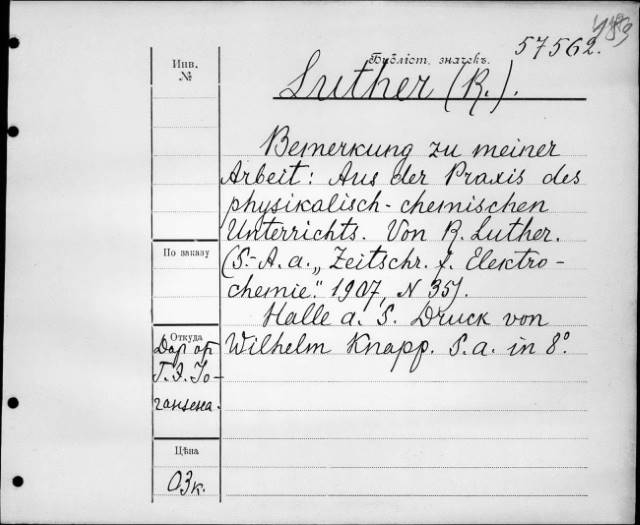 57562.
Инв.
№
Библіот. значекъ.
Luther (R.).
Bemerkung zu meiner
Arbeit: Aus der Praxis des
physikalisch-chemischen
Unterrichts. Von R. Luther.
(S.-A. a. „Zeitschr. f. Elektro-
chemie." 1907, N 35).
Halle a. S. Druck von
Wilhelm Knapp. S. a. in 8º.
По заказу
Откуда
Дар от
Г. Э. Іо-
гансена.
Цѣна
03 к.